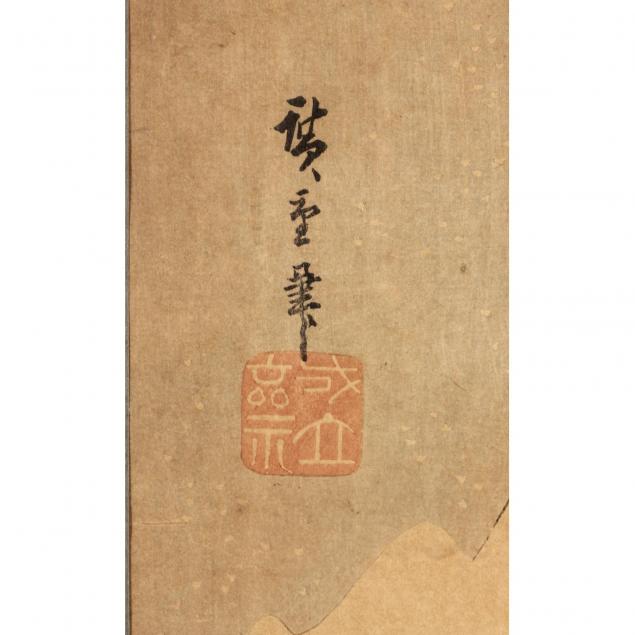 廣重筆
弌立齋